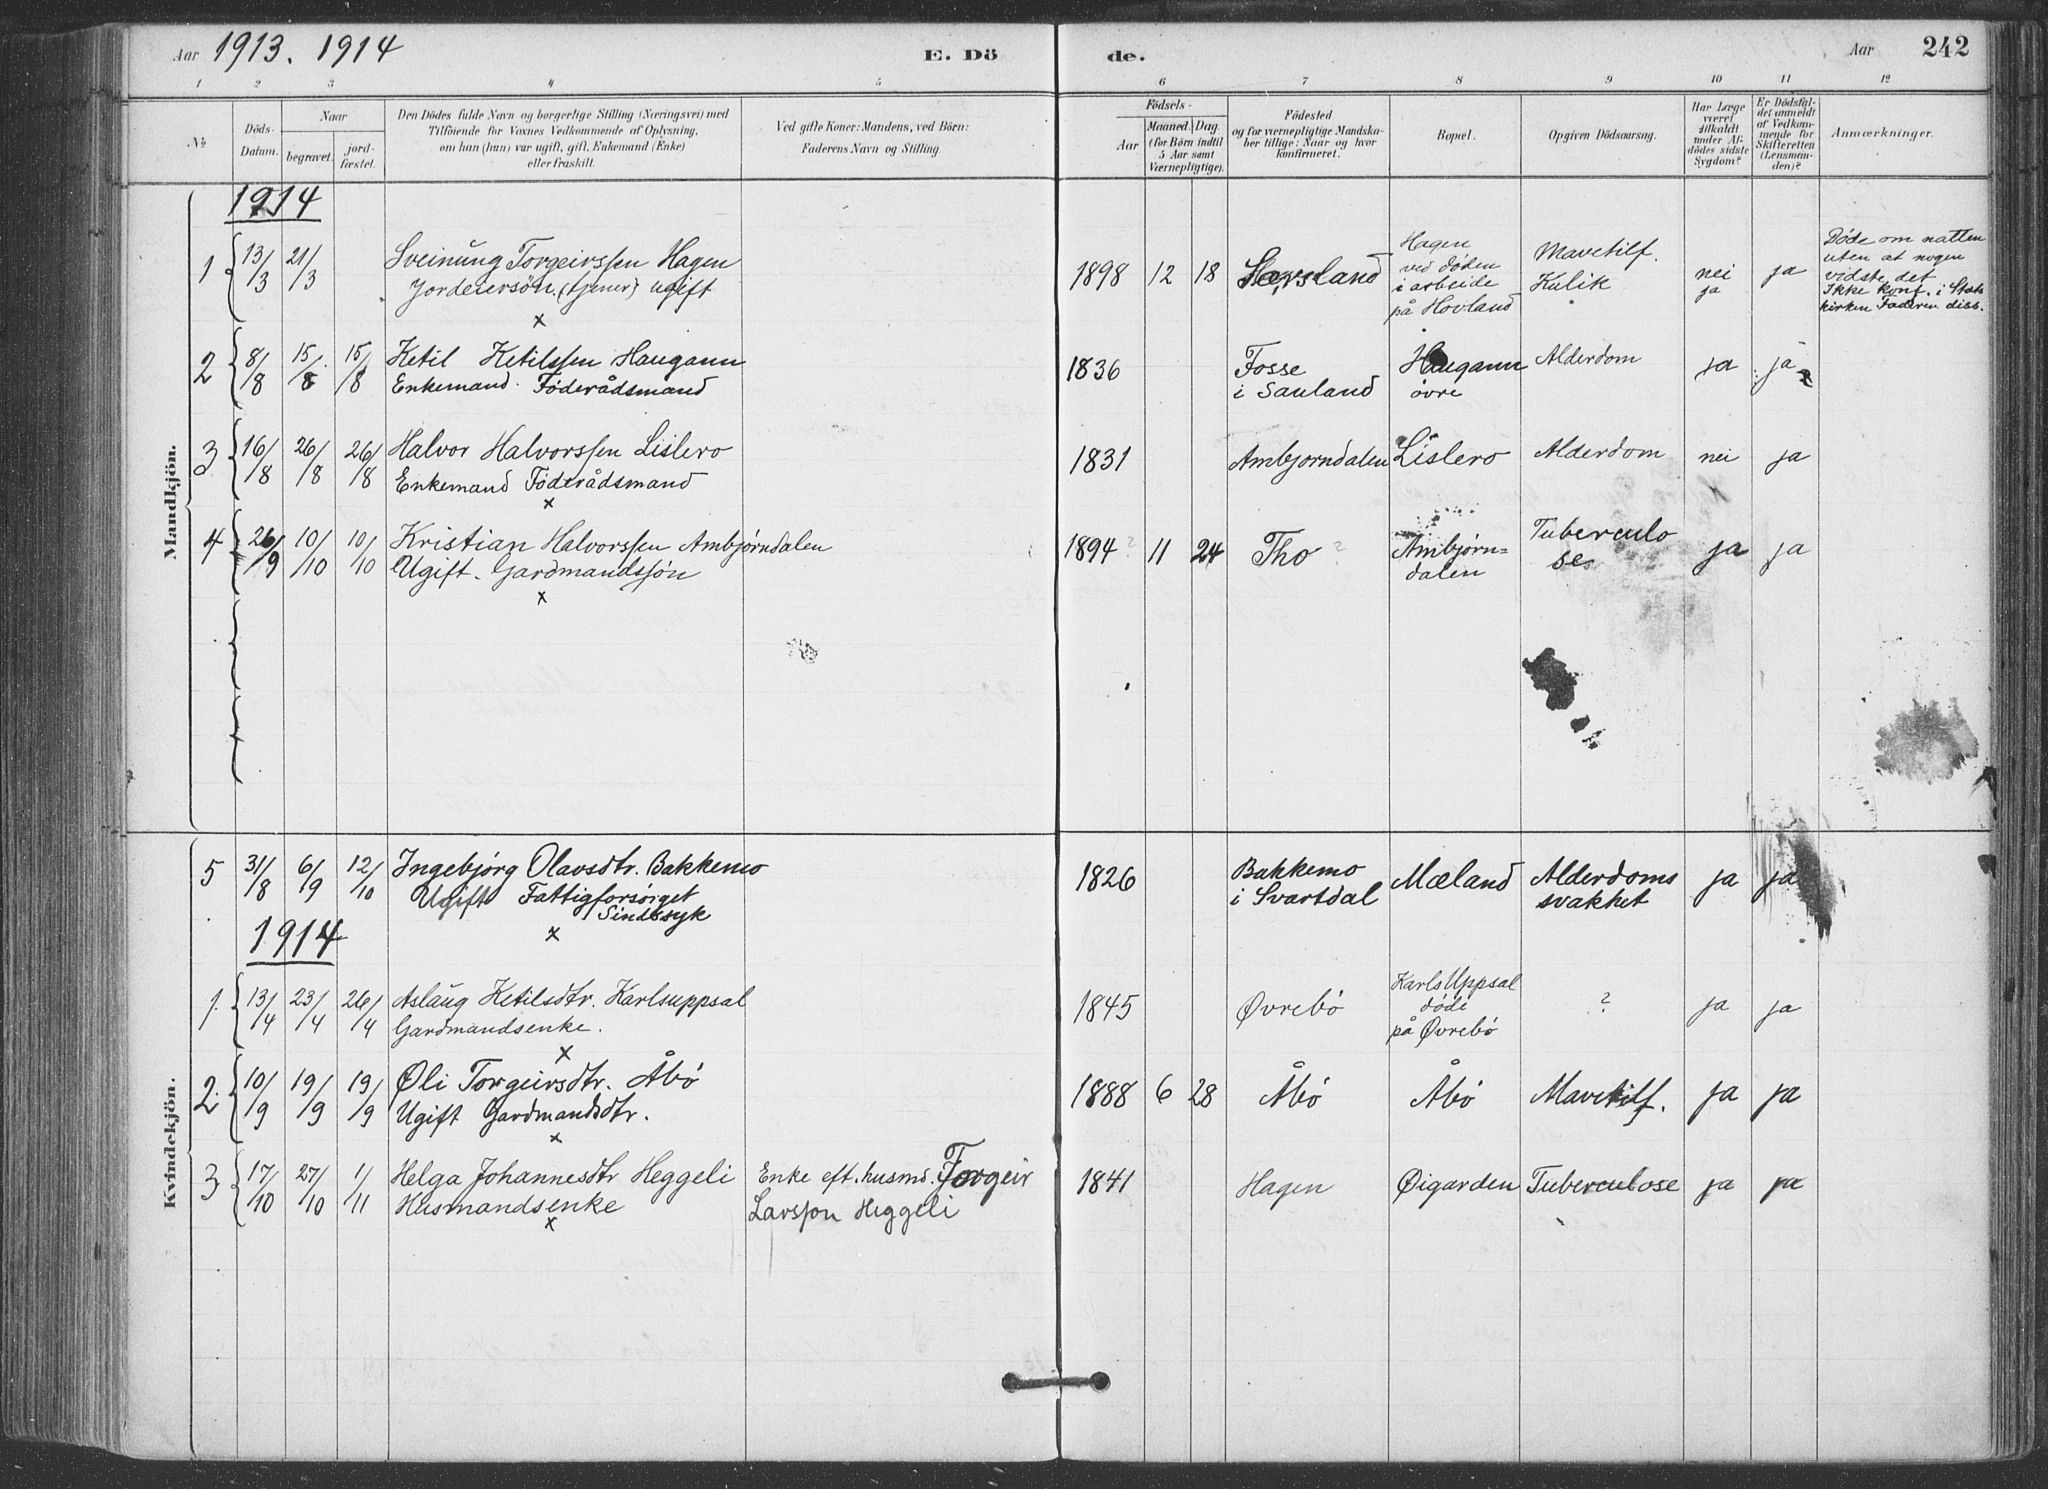 Aar 1913. 1914
E. Dö
de.
Aar
242
1 2 3 4 5 6 7 8 9 10 11 12
No.
Döds-Datum.
Naar
begravet.
jord-fæstet.
Den Dödes fulde Navn og borgerlige Stilling (Næringsvei) med
Tilföiende for Voxnes Vedkommende af Oplysning,
om han (hun) var ugift, gift, Enkemand (Enke)
eller fraskilt.
Ved gifte Koner: Mandens, ved Börn:
Faderens Navn og Stilling.
Födsels-
Aar
Maaned. Dag.
(for Börn indtil
5 Aar samt
Værnepligtige).
Födested
og for værnepligtige Mandska-
ber tillige: Naar og hvor
konfirmeret.
Bopæl.
Opgiven Dödsaarsag.
Har Læge
været
tilkaldt
under Af-
dödes sidste
Sygdom?
Er Dödsfal-
det anmeldt
af Vedkom-
mende for
Skifteretten
(Lensman-
den)?
Anmærkninger.
Mandkjön.
1914
1 13/3 21/3 Sveinung Torgeirssen Hagen 1898 12 18
Jordeiersøn (tjener) ugift
x
Hagen
ved døden
i arbeide
på Hovland
Mavetilf.
Kolik
nei
ja
ja
Døde om natten
uten at nogen
vidste det
Ikke konf. i Stats
kirken Faderen diss.
2 8/8 15/8 15/8 Ketil Ketilssen Haugann 1836 Fosse Haugann Alderdom ja ja
Enkemand. Föderådsmand i Sauland øvre
3 16/8 26/8 26/8 Halvor Halvorssen Lislero 1831 Ambjørndalen Lislero Alderdom nei ja
Enkemand Föderådsmand
x
4 26/9 10/10 10/10 Kristian Halvorssen Ambjørndalen 1894 ? 11 24 Tho ? Ambjørn= Tuberculo ja ja
Ugift. Gardmandssøn dalen se
x
Kvindekjön.
5 31/8 6/9 12/10 Ingebjørg Olavsdtr. Bakkemo 1826 Bakkemo Mæland Alderdoms ja ja
Ugift Fattigforsørget i Svartdal svakhet
Sindssyk
x
1914
1. 13/4 23/4 26/4 Aslaug Ketilsdtr. Karlsuppsal 1845 Øvrebø Karls Uppsal ? ja ja
Gardmandsenke. døde
på Øvrebø
x
2. 10/9 19/9 19/9 Øli Torgeirsdtr. Åbø 1888 6 28 Åbø Åbø Mavetilf. ja ja
Ugift Gardmandsdtr.
x
3 17/10 27/10 1/11 Helga Johannesdtr Heggeli Enke eft. husmd. Torgeir 1841 Hagen Øigarden Tuberculose ja ja
Husmandsenke Larsson Heggeli
x